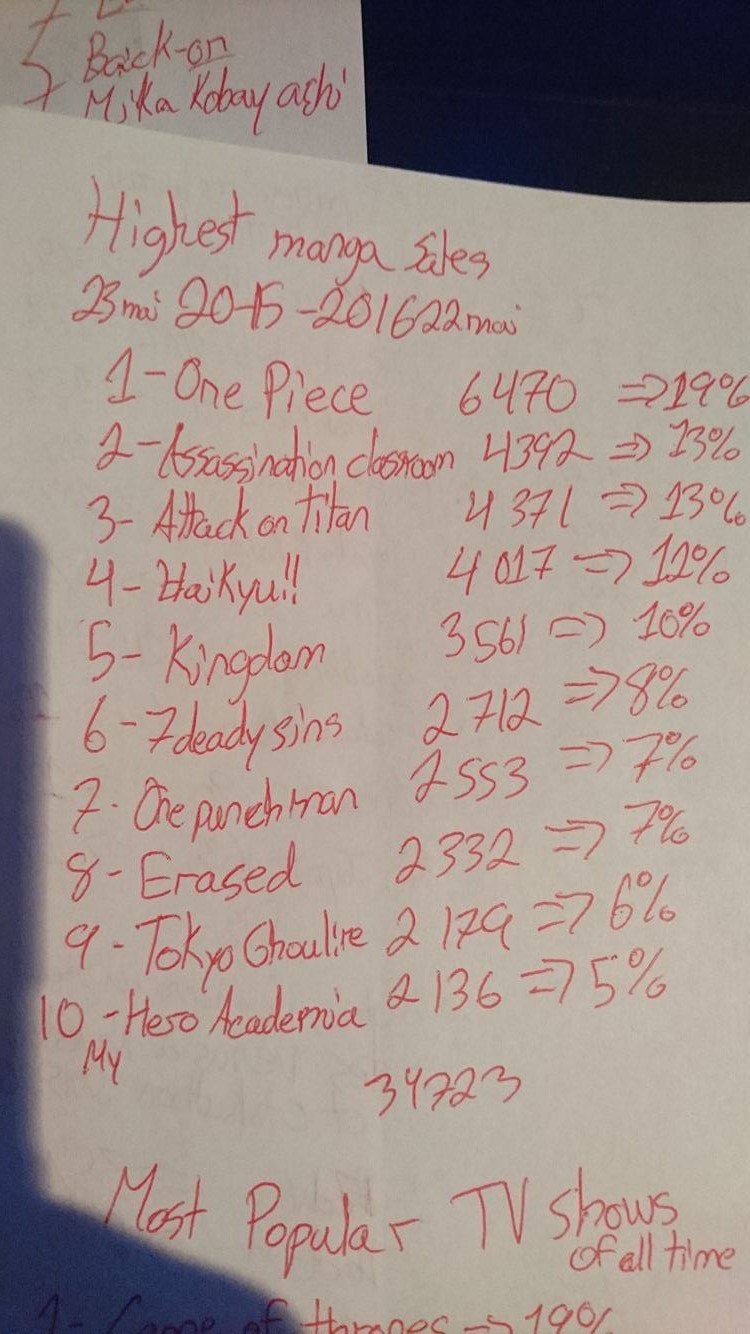 Back-on
Mika Kobayashi
Highest manga Sales
23mai 2015-2016 22mai
1-One Piece 6470 =>19%
2-Assassination classroom 4392 => 13%
3- Attack on Titan 4371 => 13%
4- Haikyu!! 4017 => 12%
5- Kingdom 3561 => 10%
6-7deadysins 2712 =>8%
7- One punch man 2553 => 7%
8- Erased 2332 => 7%
9-Tokyo Ghoul:re 2179 => 6%
10-Hero Academia 2136 => 5%
My
34723
Most Popular TV shows
of all time
1- Game of thrones => 19%